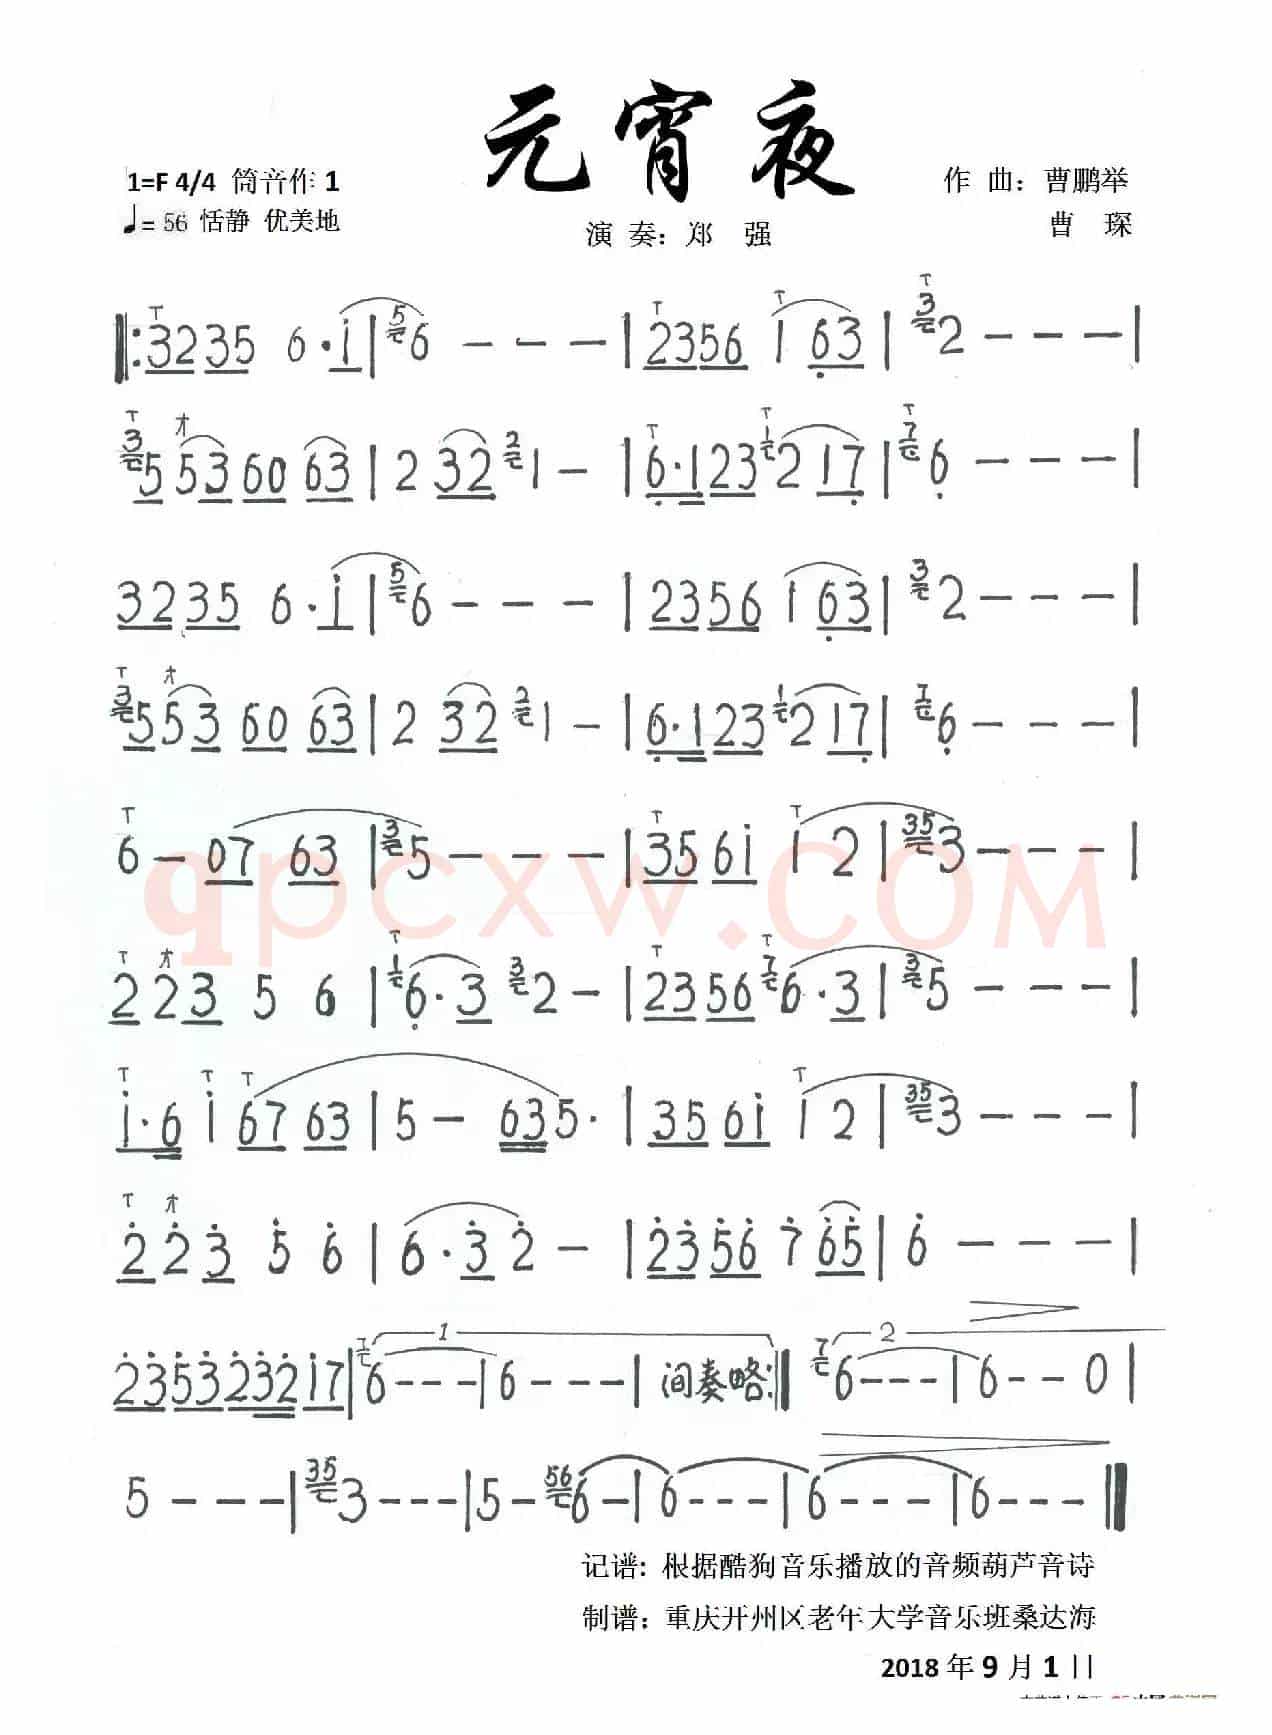 元宵夜
1=F 4/4 筒音作 1
作 曲：曹鹏举
♩= 56 恬静 优美地
曹 琛
演 奏：郑 强
‖: 3235 6·i | 6 - - - | 2356 1 63 | 2 - - - |
5 53 60 63 | 2 32 1 - | 6·123 2 17 | 6 - - - |
3235 6·i | 6 - - - | 2356 1 63 | 2 - - - |
5 53 60 63 | 2 32 1 - | 6·123 2 17 | 6 - - - |
6 - 07 63 | 5 - - - | 356i i 2 | 3 - - - |
2 23 5 6 | 6·3 2 - | 2356 6·3 | 5 - - - |
i·6 i 67 63 | 5 - 635· | 356i i 2 | 3 - - - |
2 23 5 6 | 6·3 2 - | 2356 7 65 | 6 - - - |
235323217 | 6 - - - | 6 - - - | 间奏略 :‖ 6 - - - | 6 - - 0 |
5 - - - | 3 - - - | 5 - 6 - | 6 - - - | 6 - - - | 6 - - - ‖
记谱: 根据酷狗音乐播放的音频葫芦音诗
制谱：重庆开州区老年大学音乐班桑达海
2018 年 9 月 1
qpcxw.COM